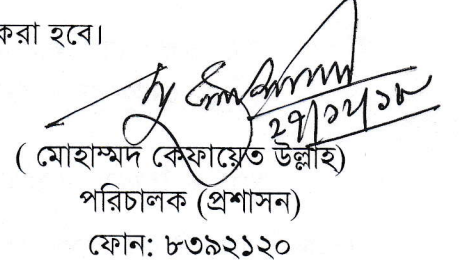 করা হবে।
২৭/১২/১৮
( মোহাম্মদ কেফায়েত উল্লাহ)
পরিচালক (প্রশাসন)
ফোন: ৮৩৯২১২০